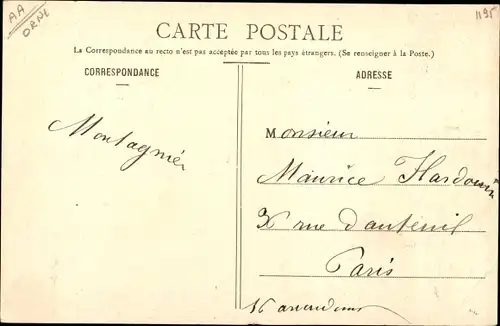 AA
ORNE
1195
CARTE POSTALE
La Correspondance au recto n'est pas acceptée par tous les pays étrangers. (Se renseigner à la Poste.)
CORRESPONDANCE
ADRESSE
Montagnier
Monsieur
Maurice Hardouin
rue d'auteuil
Paris
16